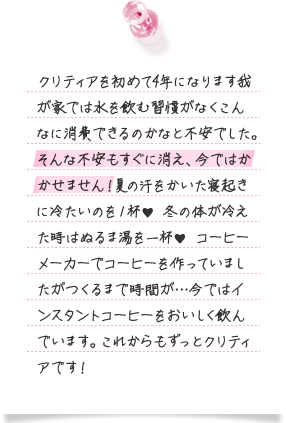 クリティアを初めて4年になります我
が家では水を飲む習慣がなくこん
なに消費できるのかなと不安でした。
そんな不安もすぐに消え、今ではか
かせません！夏の汗をかいた寝起き
に冷たいのを1杯♥ 冬の体が冷え
た時はぬるま湯を一杯♥ コーヒー
メーカーでコーヒーを作っていまし
たがつくるまで時間が…今ではイ
ンスタントコーヒーをおいしく飲ん
でいます。これからもずっとクリティ
アです！